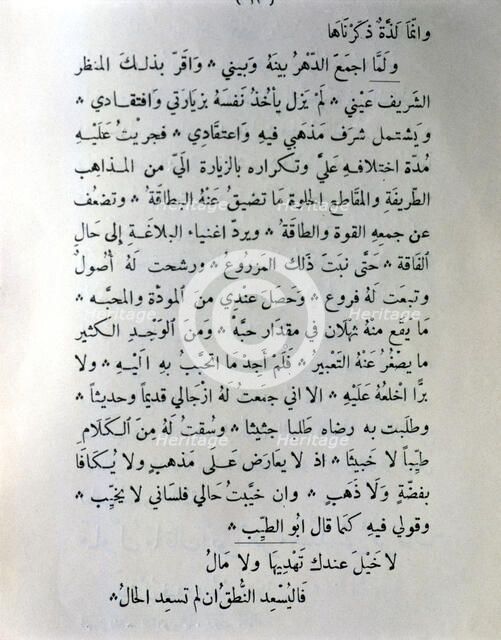 (١٢)
وانّما لَذّةٌ ذكَرْنَاهَا
ولَمَّا اجمَعَ الدّهْرُ بينهُ وَبيني * وَاقَرّ بذلكَ المنظر
الشريف عَيْني * لَمْ يَزل يأخُذُ نَفسَهُ بزيارَتي وَافتقادي *
وَيشتمل شرَف مَذهَبي فيهِ وَاعتقادي * فجريْتُ عَلَيْهِ
مُدّة اختلافهِ عَليَّ وَتكراره بالزيارة اليّ من المذاهب
الطّريفَةِ وَالمقَاطيع الحلوة مَا تضيقُ عَنهُ البطاقَةُ * وَتضعُف
عن جمعهِ القوة والطاقَةُ * وَيردّ اغنياء البلاغَةِ إلى حَالِ
الفَاقة * حَتَّى نبَتَ ذَلكَ المزرُوعُ * وَرشحت لَهُ أُصُولٌ
وَتبعَت لَهُ فروع * وَحَصَلَ عندي من المودّة وَالمحبّه *
مَا يقَع منهُ ثهلَان في مقدَار حبّةٍ * وَمن الوَجدِ الكثير
ما يصْغُرُ عَنهُ التَعبيرُ * فَلَمْ أجِد مَا اتحَبّبُ به الَيْهِ * وَلا
برًّا اخلعهُ عَلَيْهِ * الا اني جمعتُ لَهُ ازْجَالي قديماً وَحديثاً *
وطَلَبت به رضاهُ طلبا حثيثا * وَسقتُ لَهُ مِنَ الكَلَامِ
طيّباً لَا خَبيثا * اذ لا يعَارَض عَلَى مذهبٍ وَلا يُكافَا
بفضّةٍ وَلا ذَهَبٍ * وان خيّبتُ حَالي فلسَاني لَا يخيّب *
وقولي فيهِ كمَا قال ابُو الطيّب *
لا خَيْلَ عندك تَهْديهَا وَلا مَالُ
فَاليُسْعِد النّطقُ ان لم تسعد الحَالُ *
Heritage
Heritage
Heritage
Heritage
Heritage
Heritage